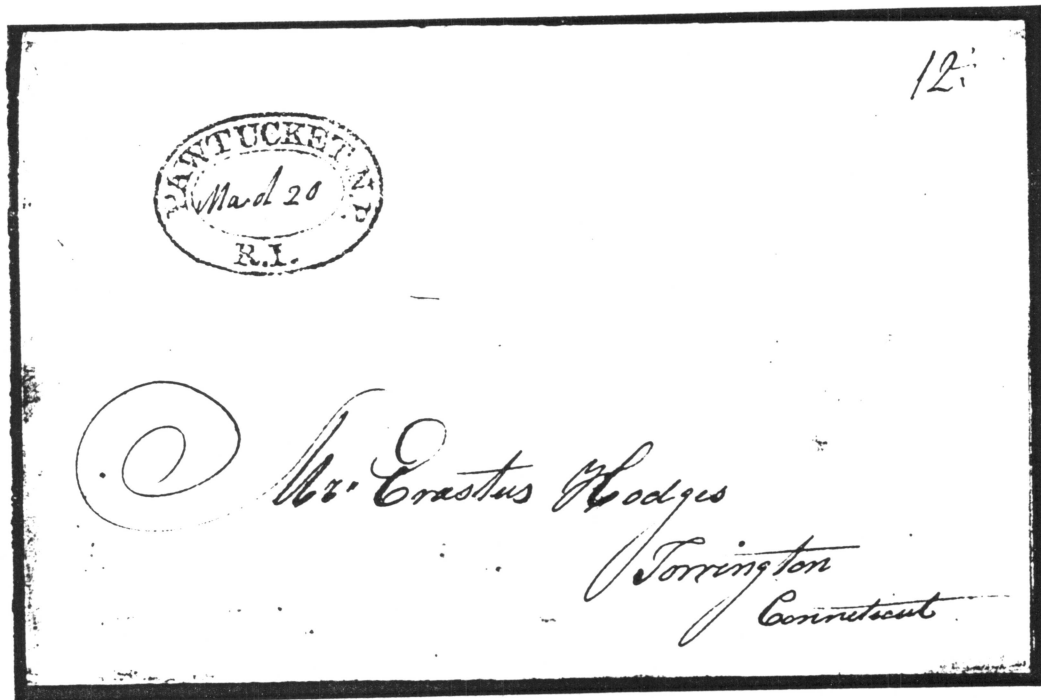 12½
PAWTUCKET N.P.
March 20
R.I.
Mr. Erastus Hodges
Torrington
Conneticut